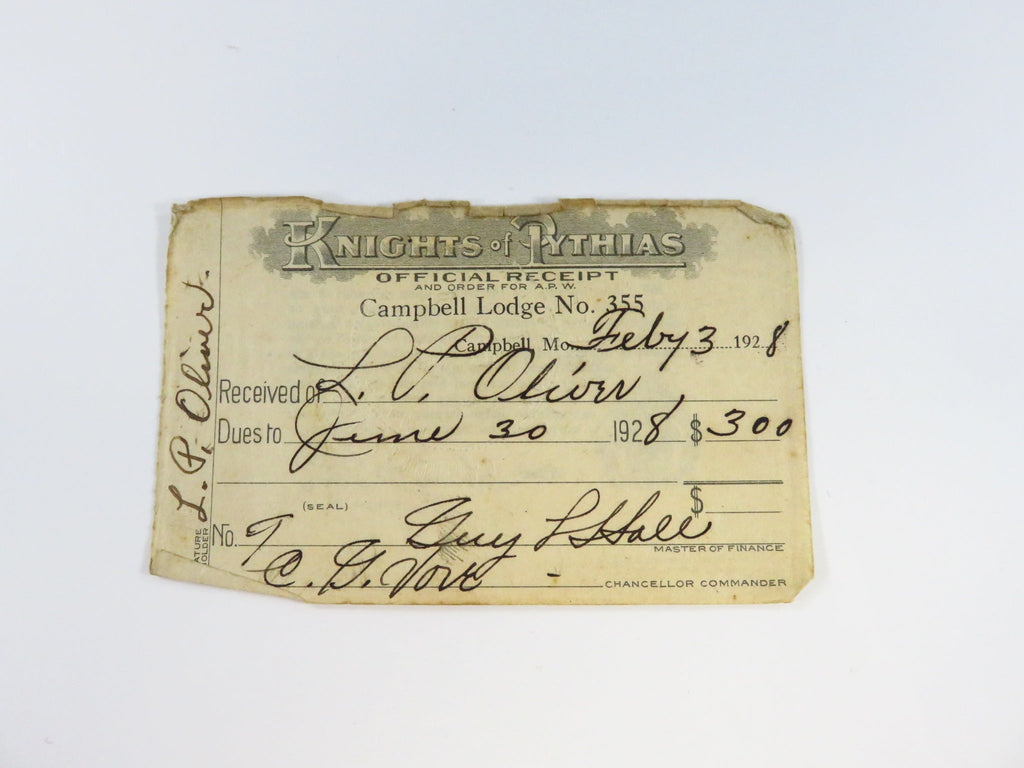 KNIGHTS of PYTHIAS
OFFICIAL RECEIPT
AND ORDER FOR A.P.W.
Campbell Lodge No. 355
Campbell, Mo. Feby 3 1928
Received of L. P. Oliver,
Dues to June 30 1928 $ 300
$
(SEAL)
No. 7 Guy L Hall
MASTER OF FINANCE
C. G.
CHANCELLOR COMMANDER
L. P. Oliver.
ATURE
OLDER